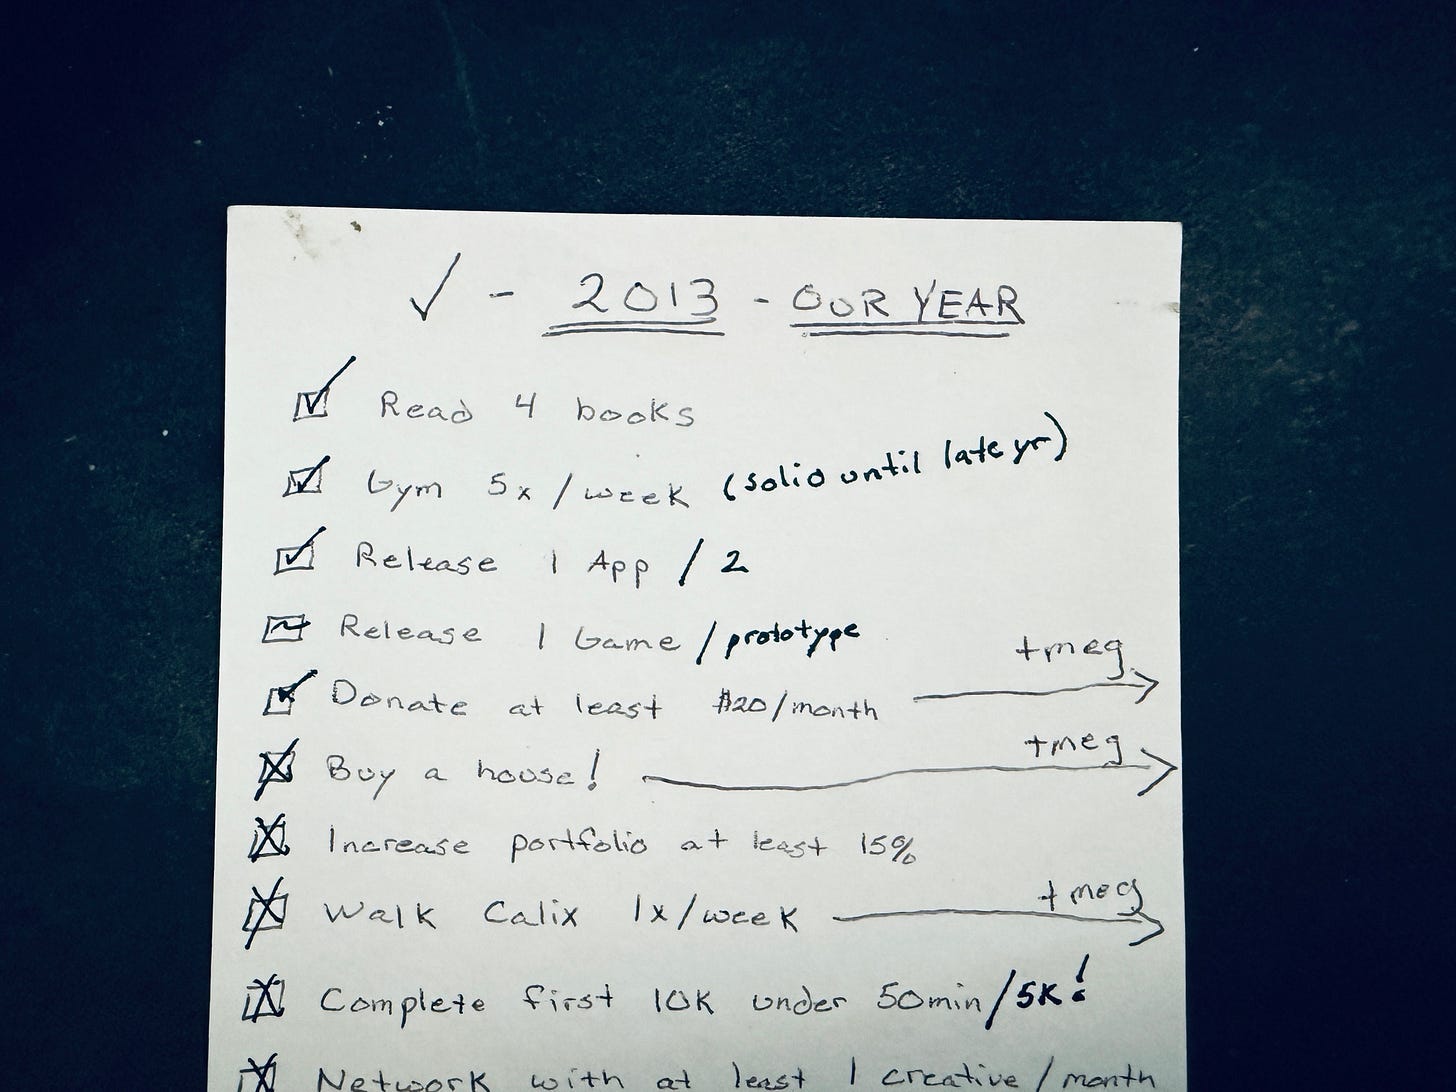 ✓ - 2013 - OUR YEAR
Read 4 books
Gym 5x/week (solio until late yr)
Release 1 App / 2
Release 1 Game / prototype
+meg
Donate at least $20/month
+meg
Buy a house!
Increase portfolio at least 15%
+meg
Walk Calix 1x/week
Complete first 10K under 50min/5K!
Network with at least 1 creative/month